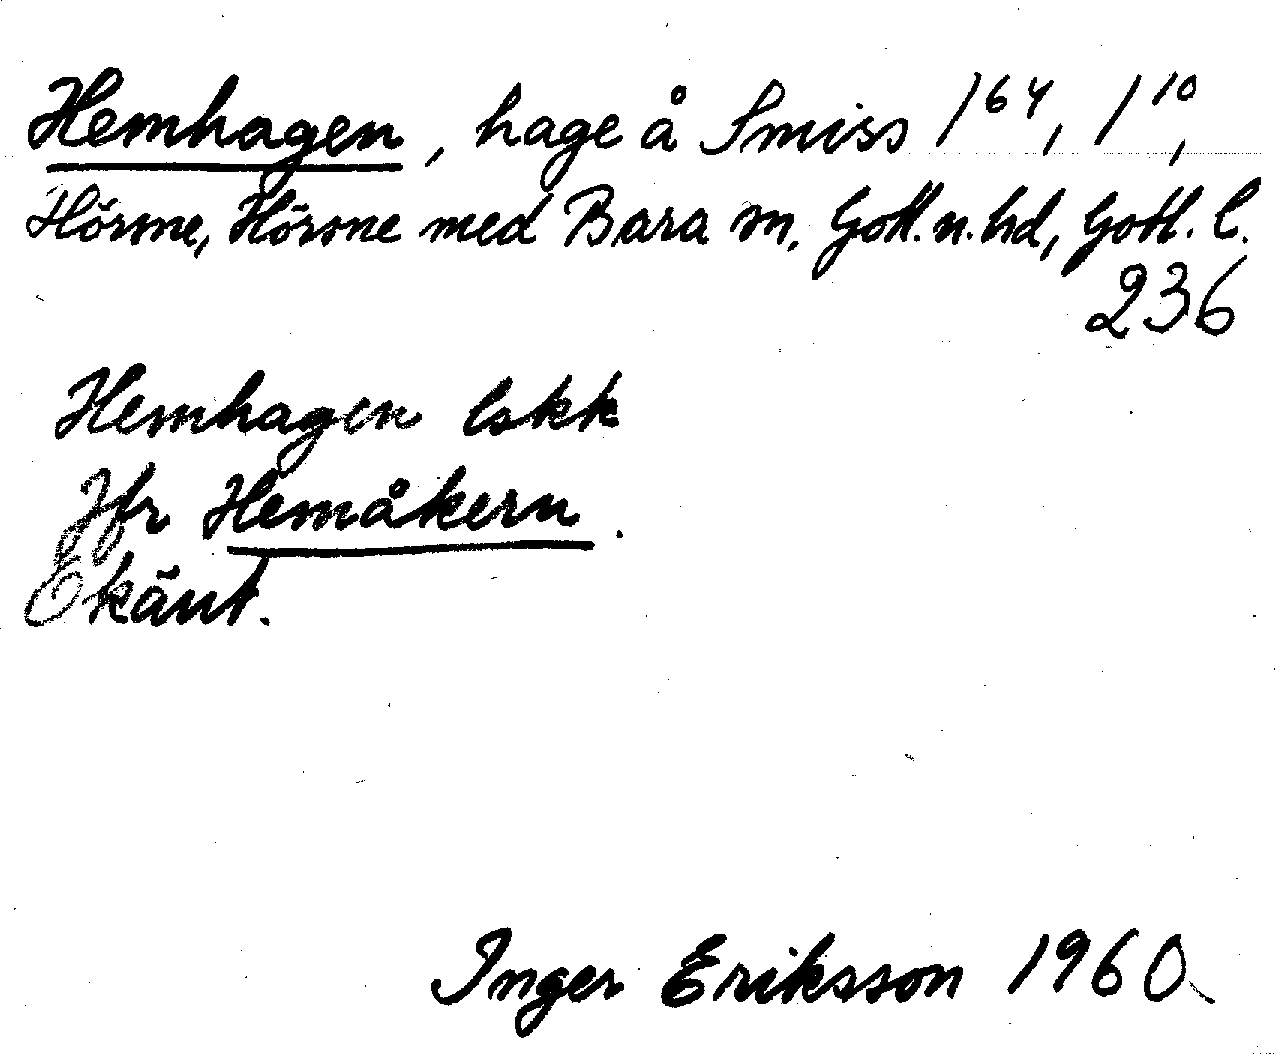 Hemhagen, hage å Smiss 1⁶⁴, 1¹⁰,
Hörsne, Hörsne med Bara sn, Gotl. n. hd, Gotl. l.
236
Hemhagen lskk
Jfr Hemåkern.
Okänt.
Inger Eriksson 1960